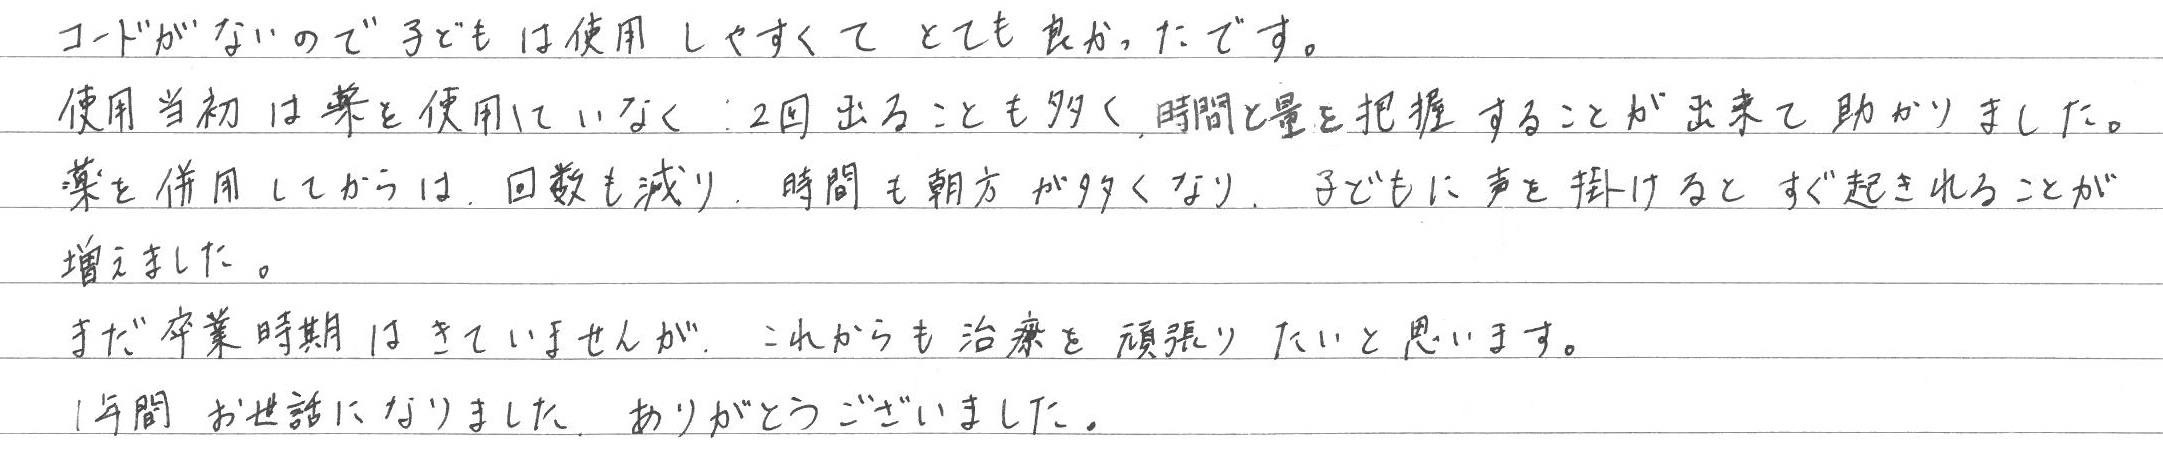 コードがないので子どもは使用しやすくてとても良かったです。
使用当初は薬を使用していなく、2回出ることも多く、時間と量を把握することが出来て助かりました。
薬を併用してからは、回数も減り、時間も朝方が多くなり、子どもに声を掛けるとすぐ起きれることが
増えました。
まだ卒業時期はきていませんが、これからも治療を頑張りたいと思います。
1年間お世話になりました、ありがとうございました。